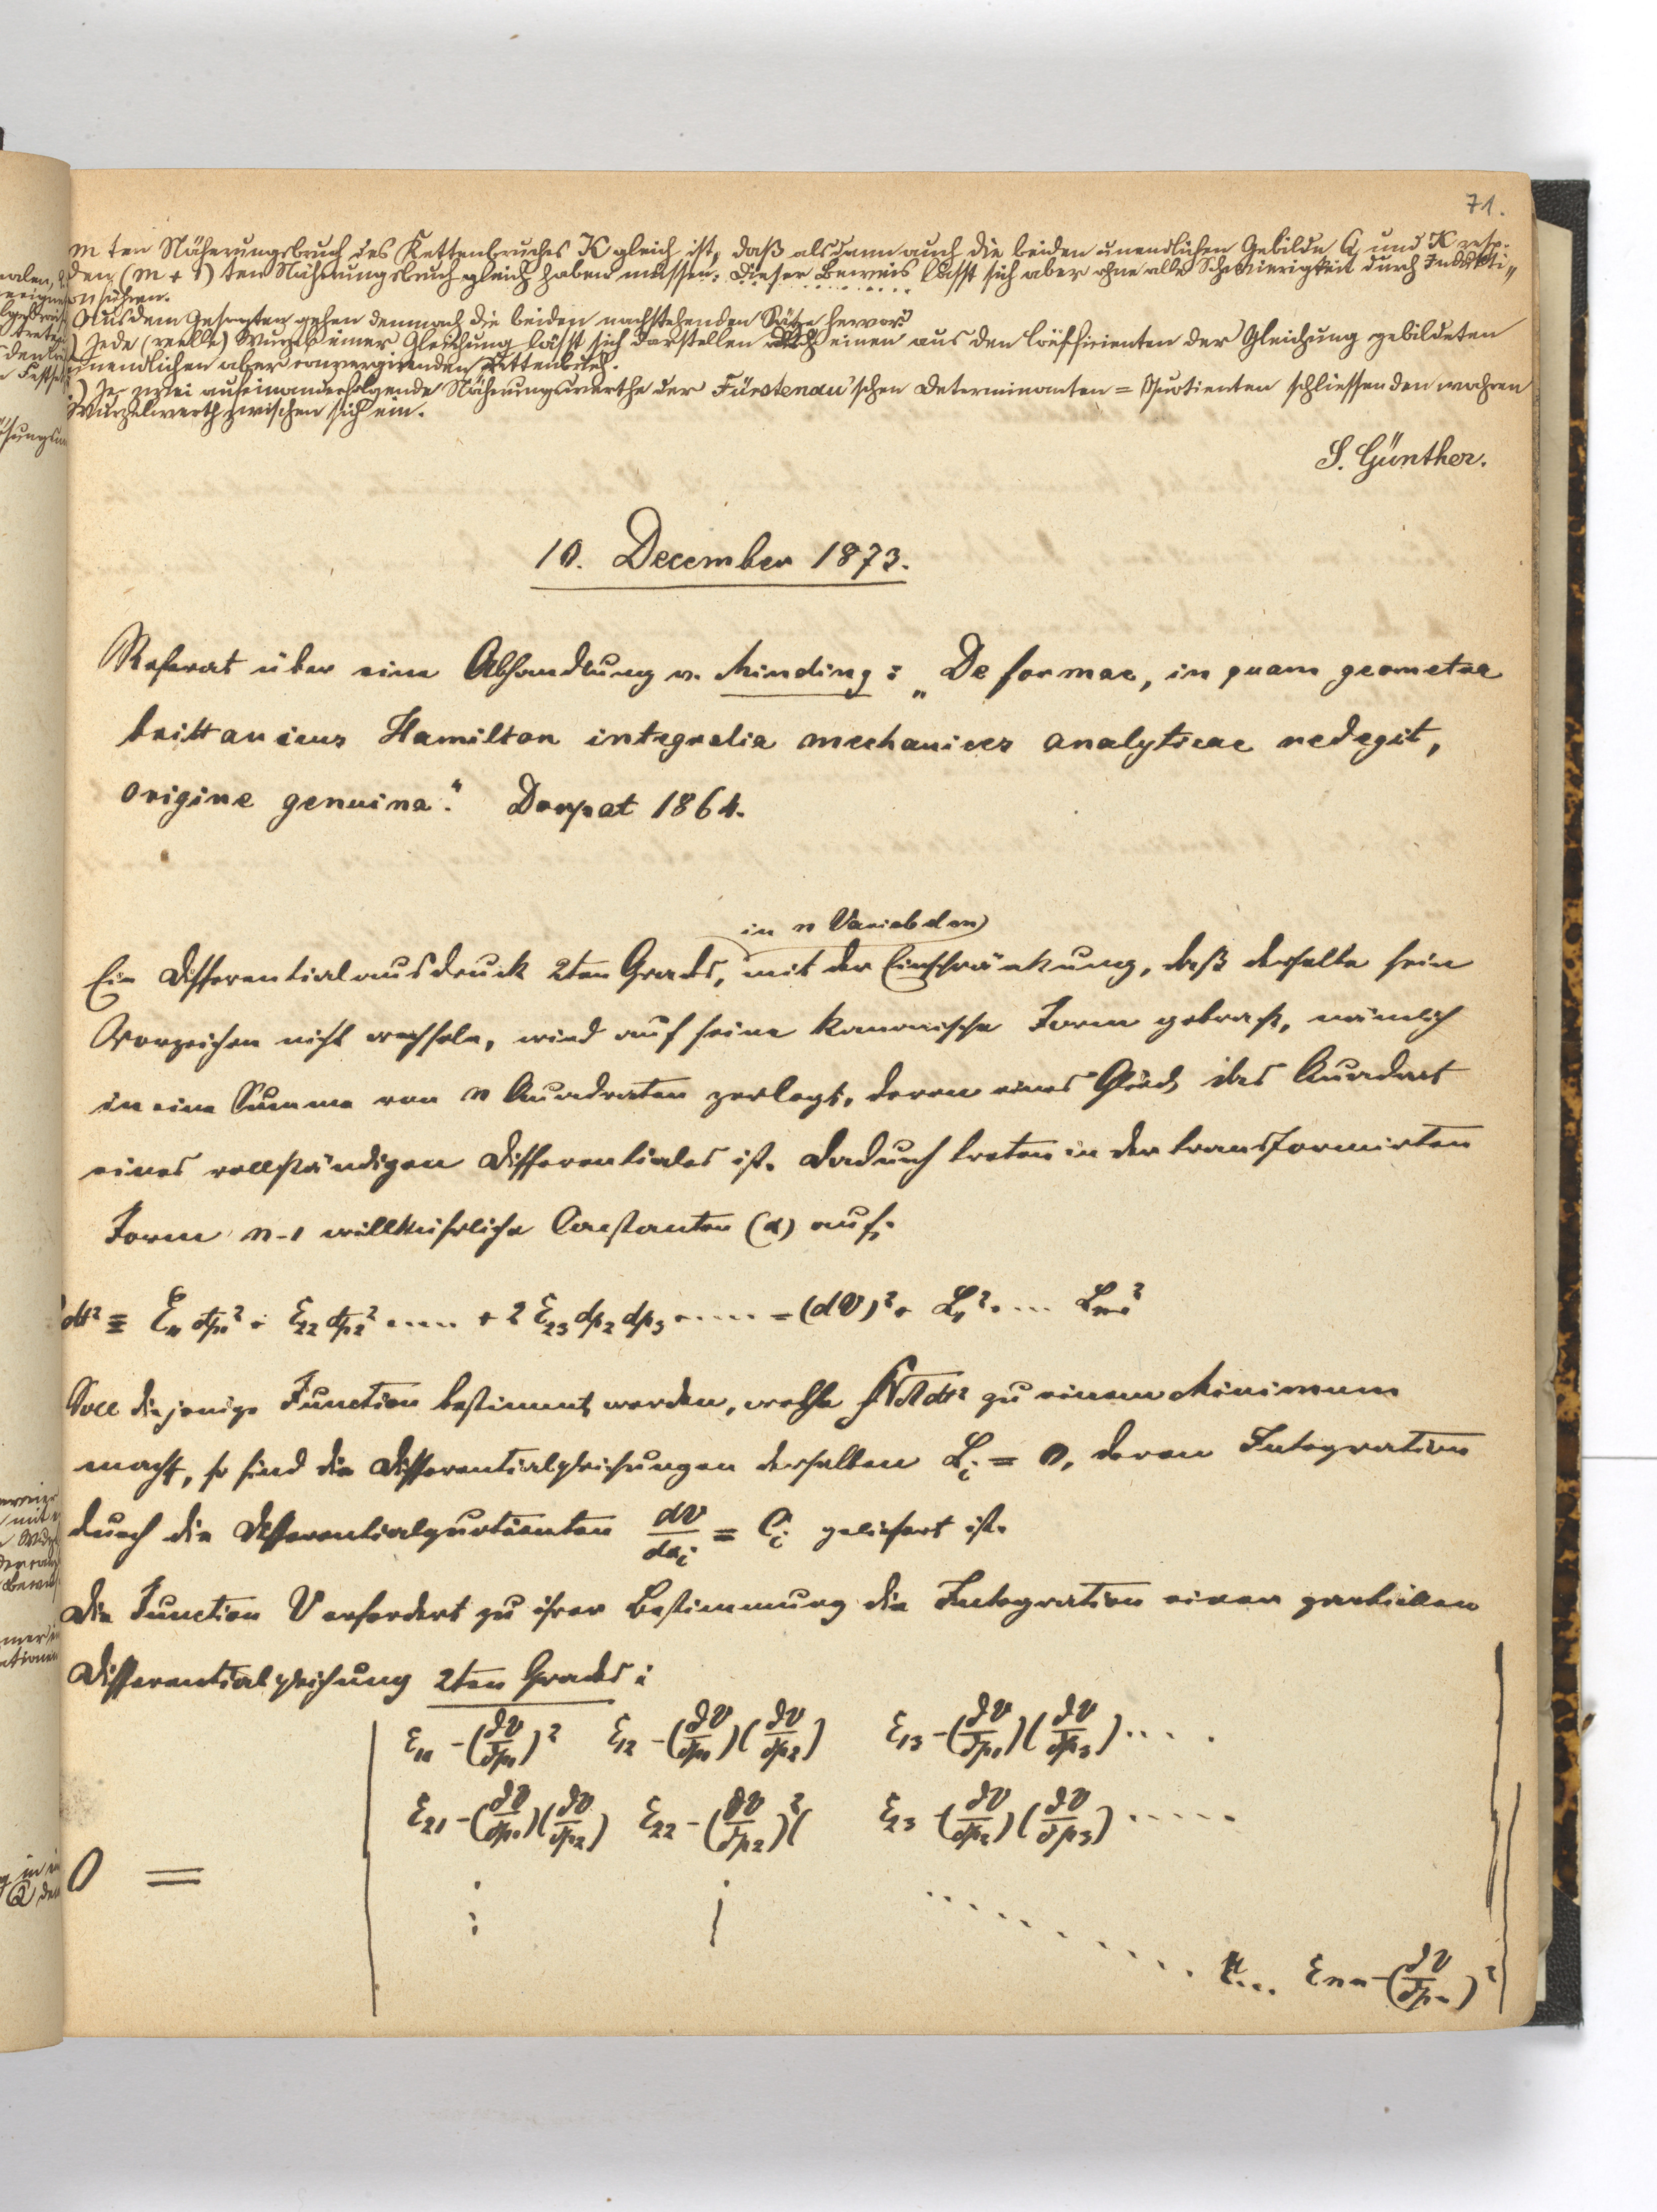 71.
m ten Näherungsbruch des Kettenbruches K gleich ist, daß alsdann auch die beiden unendlichen Gebilde Q und K resp.
den (m + 1) ten Näherungsbruch gleich haben müssen. Dieser Beweis lässt sich aber ohne alle Schwierigkeit durch Indukti„
on führen.
Aus dem Gesagten gehen demnach die beiden nachstehenden Sätze hervor:
) Jede (reelle) Wurzel einer Gleichung lässt sich darstellen durch einen aus den Coëfficienten der Gleichung gebildeten
unendlichen aber convergirenden Kettenbruch.
) Je zwei aufeinanderfolgende Näherungswerthe der Fürstenau'schen Determinanten = Quotienten schliessen den wahren
Wurzelwerth zwischen sich ein.
S. Günther.
10. December 1873.
Referat über eine Abhandlung v. Minding: „De formae, in quam geometra
brittanicus Hamilton integralia mechanices analyticae redegit,
origine genuina". Dorpat 1864.
in n Variabeln
Ein Differentialausdruck 2ten Grads, mit der Einschränkung, daß derselbe sein
Vorzeichen nicht wechsele, wird auf seine kanonische Form gebracht, nämlich
in eine Summe von n Quadraten zerlegt, deren eines Glied das Quadrat
eines vollständigen Differentiales ist. Dadurch treten in der transformirten
Form n-1 willkührliche Constanten (α) auf.
dt² = ε₁₁ dp₁² + ε₂₂ dp₂² .... + 2 ε₂₃ dp₂ dp₃ ..... = (dV)² + L₁² + ... Lₙ₋₁²
Soll diejenige Function bestimmt werden, welche ∫√T dt² zu einem Minimum
macht, so sind die Differentialgleichungen derselben Lᵢ = 0, deren Integration
durch die Differentialquotienten dV/dαᵢ = Cᵢ geliefert ist.
Die Function V erfordert zu ihrer Bestimmung die Integration einer partiellen
Differentialgleichung 2ten Grads:
ε₁₁ - (∂V/∂p₁)² ε₁₂ - (∂V/∂p₁)(∂V/∂p₂) ε₁₃ - (∂V/∂p₁)(∂V/∂p₃) ....
ε₂₁ - (∂V/∂p₁)(∂V/∂p₂) ε₂₂ - (∂V/∂p₂)² ε₂₃ - (∂V/∂p₂)(∂V/∂p₃) .....
0 =
... εₙₙ - (∂V/∂pₙ)²